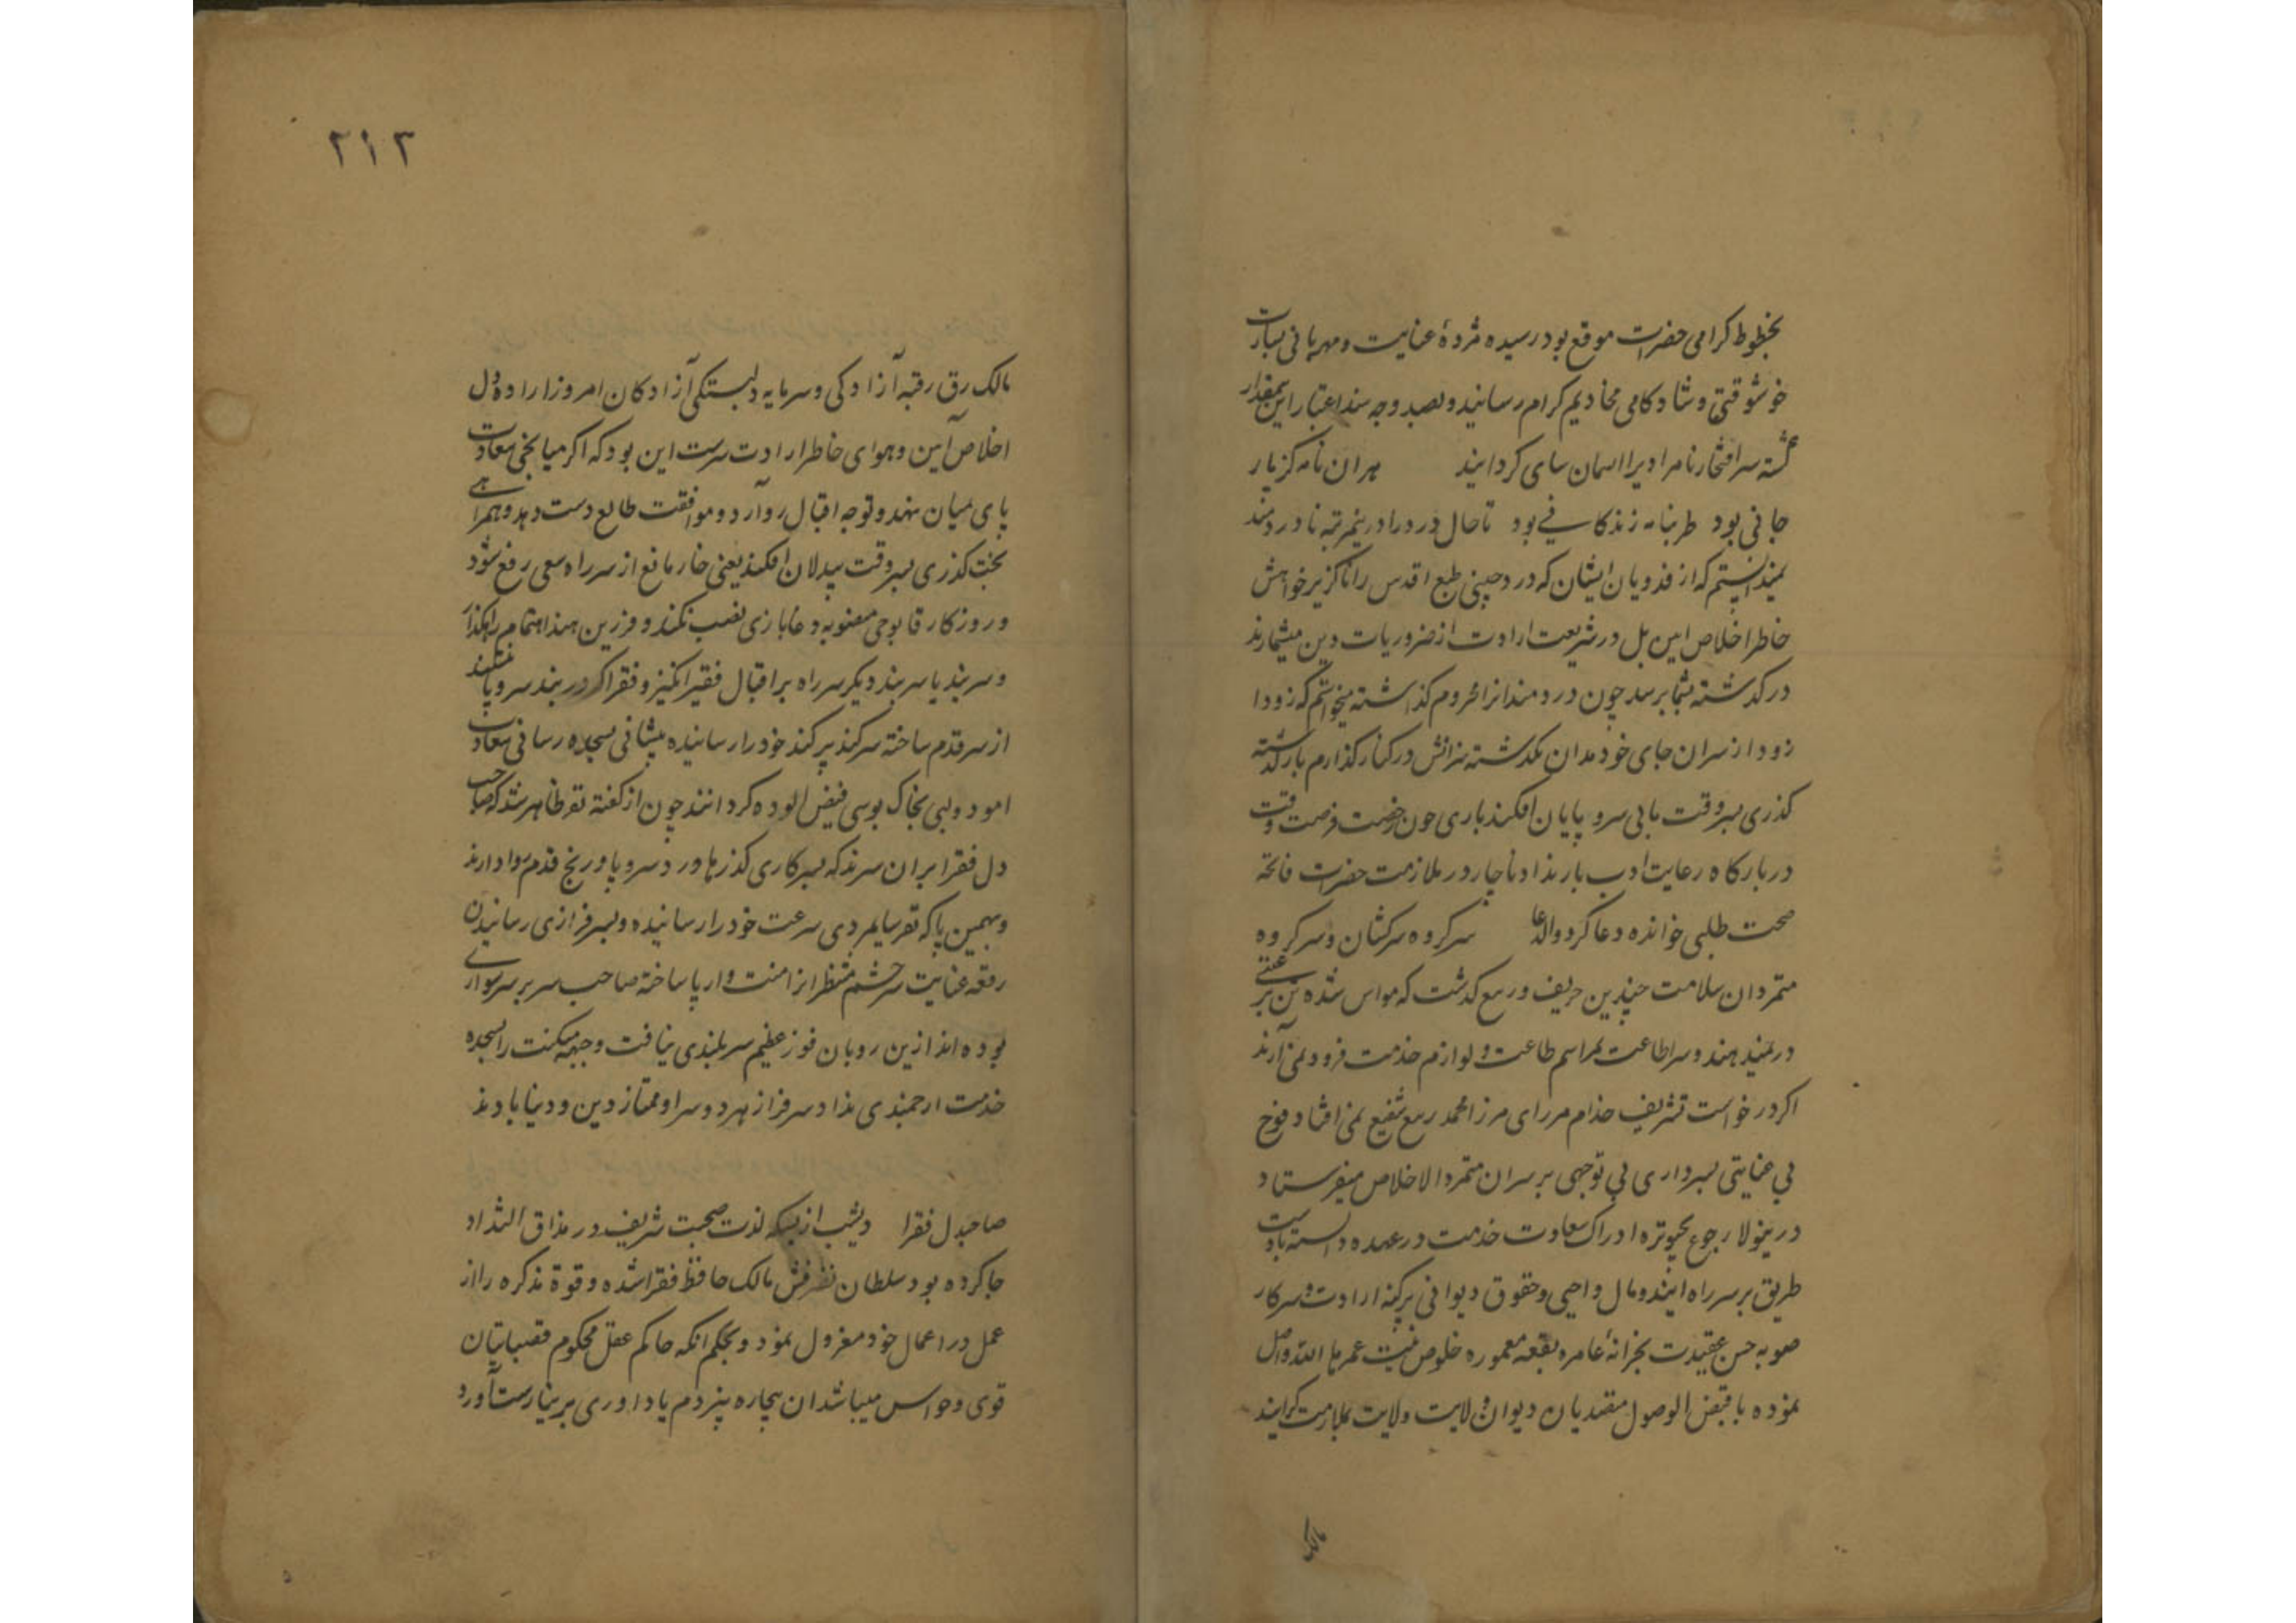 بخطوط کرامی حضرات موقع بود رسیده مژدهٔ عنایت و مهربانی بشارت
خوشوقتی و شادکامی مخادیم کرام رسانید و بصد وجه سند اعتبار این بیمقدار
گشته سر افتخار نامرادیرا اسمان سای کردانید هران نامه کز یار
جانی بود طربنامه زندکانی بود تاحال درد را درینمرتبه نادردمند
نمیدانستم که از فدویان ایشان که درد چینی طبع اقدس را ناکزیر خواهش
خاطر اخلاص امین بل در شریعت ارادت از ضروریات دین میشمارند
درکدشته بشما برسد چون دردمندانرا محروم کذاشته میخواستم که زودا
زود از سران جای خود مدان نکدشته سزانش در کنار کذارم بارکدشته
کذری بسروقت ما بی سروپایان افکند باری چون رخصت فرصت وقت
دربارکاه رعایت ادب بار نداد ناچار در ملازمت حضرت فاتحه
صحت طلبی خوانده دعا کرد والدعا سرکروه سرکشان و سرکروه
متمردان سلامت چندین حریف و ربیع کدشت که مواس شده تن بر عیتی
در نمیدهند و سر اطاعت بمراسم طاعت و لوازم خدمت فرود نمی آرند
اکر درخواست تشریف خدام مررای مرزا محمد ربیع شفیع نمی افتاد فوج
بی عنایتی بسرداری بی توجهی بر سران متمرد الاخلاص میفرستاد
درینولا رجوع بچبوتره ادراک سعادت خدمت در عهده دانسته بادیت
طریق بر سر راه ایند و مال واجبی و حقوق دیوانی پرکنه ارادت و سرکار
صوبه حسن عقیدت بخزانهٔ عامره بقعه معموره خلوص نیت عمرها الله واصل
نموده با قبض الوصول مقتدیان دیوان ولایت ولایت بملازمت کرایند
مالک
۲۱۳
مالک رق رقبه آزادکی و سرمایه دلبستکی آزادکان امروز اراده دل
اخلاص آیین و هوای خاطر ارادت سرست این بود که اکر میانجی سعادت
پای بمیان نهد و توجه اقبال رو آرد و موافقت طالع دست دهد و همراهی
بخت کذری بسروقت بیدلان افکند یعنی خار مانع از سر راه سعی رفع شود
و روزکار قابوجی منصوبه دغابازی نصب نکند و فرزین بند اهتمام
و سر بند یا سر بند دیکر سر راه بر اقبال فقیر انکیز و فقرا که در بند سروپا نیستند
از سر قدم ساخته سر کند پر کند خود را رسانیده پیشانی بسجده رسانی سعادت
امود و لبی بخاک بوسی فیض الوده کردانند چون از کفته تقر ظاهر شد که صاحب
دل فقرا بران سرند که بسرکاری کذرها درد سر و پا و رنج قدم روا دارند
و بهمین پا که تقر سایمردی سرعت خود را رسانیده و بسرفرازی رسانیدن
رقعه عنایت سر چشم منتظرانرا منت وار پا ساخته صاحب سر بر سر سواری
بوده اند ازین رو بان فوز عظیم سربلندی نیافت و جبهه مسکنت را بسجده
خدمت ارجمندی نداد سرفراز هر دو سرا و ممتاز دین و دنیا بادند
صاحبدل فقرا دیشب از بسکه لذت صحبت شریف در مذاق التذاد
جا کرده بود سلطان نفس مالک حافظ فقرا شده و قوة مذکره را از
عمل در اعمال خود معزول نمود و بحکم انکه حاکم عقل محکوم
قوی و حواس میباشد ان بیچاره نیز دم یاداوری بر نیارست آورد